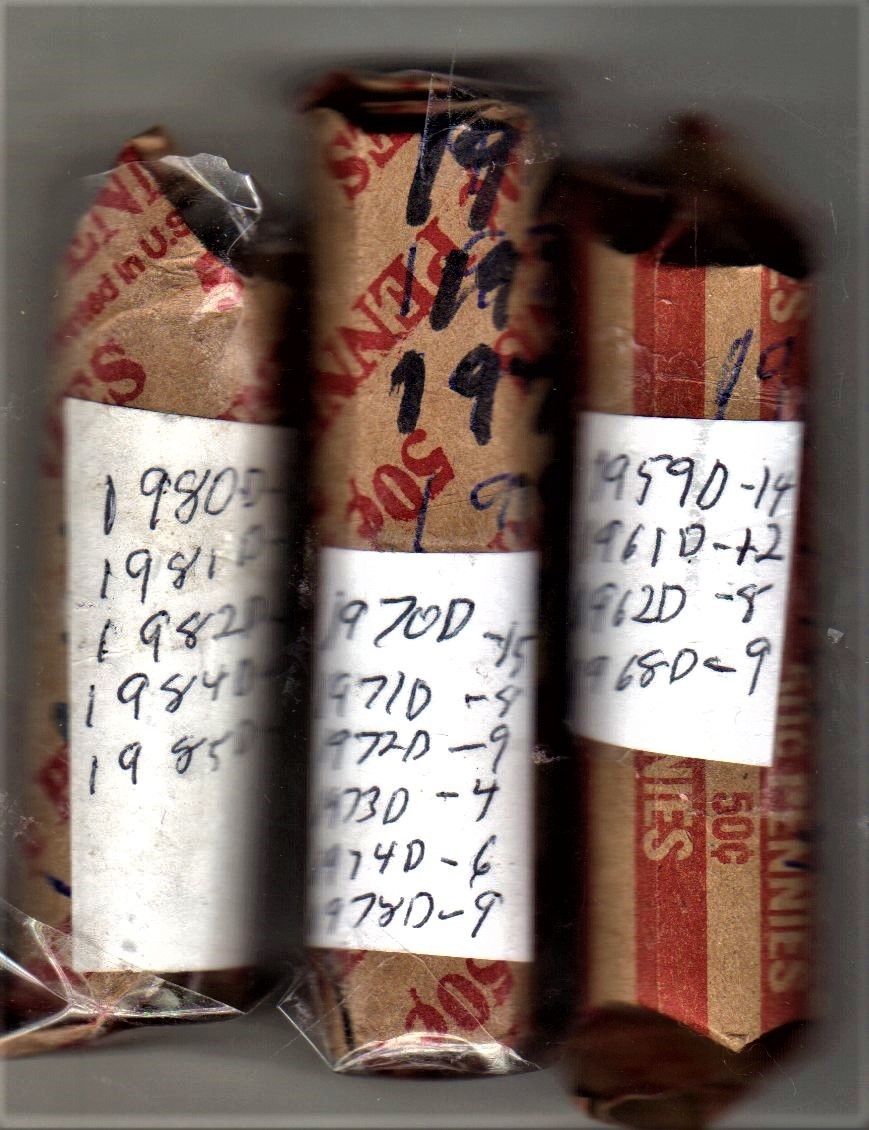 NNIES
med in U.S.
ES
1980D-
1981D-
1982D-
1984D-
1985D-
ES
19
PENN
19
19
50¢
19
1970D -15
1971D -8
1972D -9
1973D -4
1974D -6
1978D -9
50¢
19
1959D -14
1961D -12
1962D -8
1968D -9
NIES
50¢
PENNIES